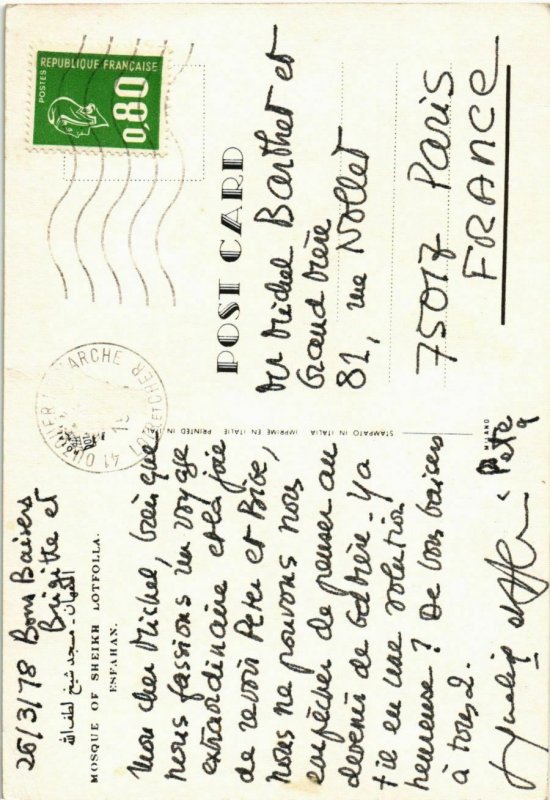 26/3/78 Bons Baisers
Brigitte et
اصفهان - مسجد شیخ لطف الله
MOSQUE OF SHEIKH LOTFOLLA.
ESFAHAN.
Mon cher Michel, bien que
nous fassions un voyage
extraordinaire et la joie
de revoir Peter et Brige,
nous ne pouvons nous
empêcher de penser au
devenir de Gd Mère - Ya
t-il en une solution
heureuse ? De bons baisers
à tous 2.
Peter
POSTES
REPUBLIQUE FRANÇAISE
0,80
41
LOIR ET CHER
POST CARD
STAMPATO IN ITALIA IMPRIME EN ITALIE PRINTED IN ITALIE
MILANO
Mr Michel Barthet et
Grand Mère
82, rue Nollet
75017 Paris
FRANCE